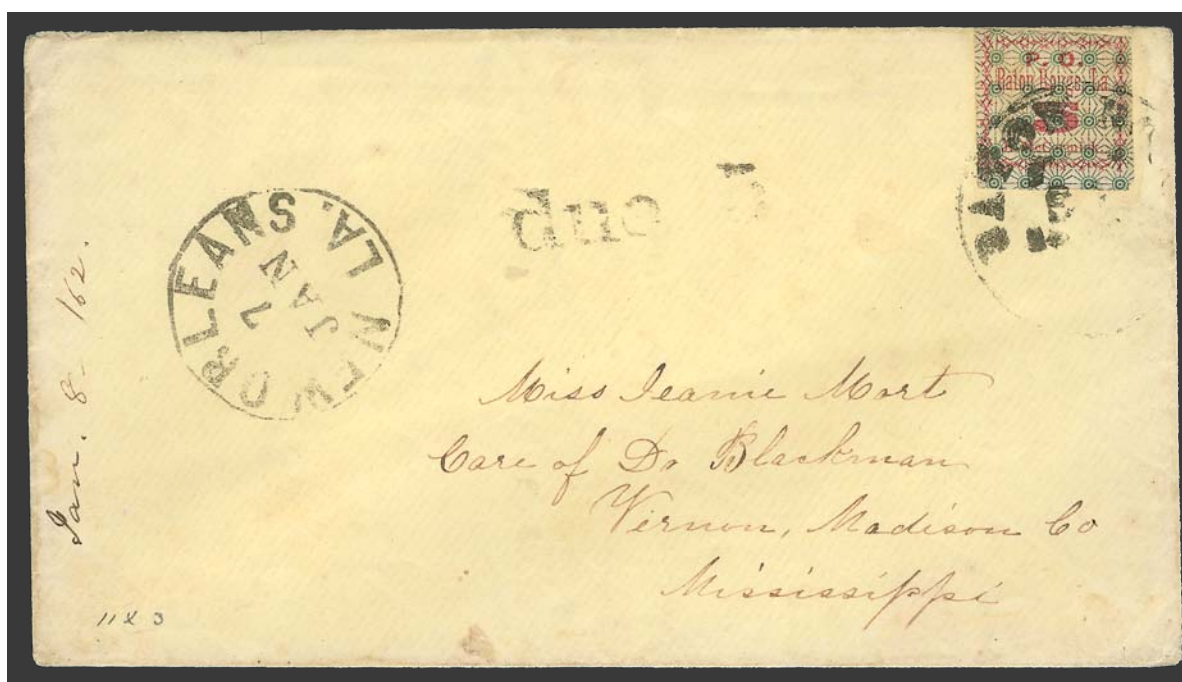 P. O.
Baton Rouge, La.
5
due 5
NEW ORLEANS. LA.
JAN
7
Jan. 8 - 162.
Miss Jeanie Mort
Care of Dr Blackman
Vernon, Madison Co
Mississippi
11 X 3